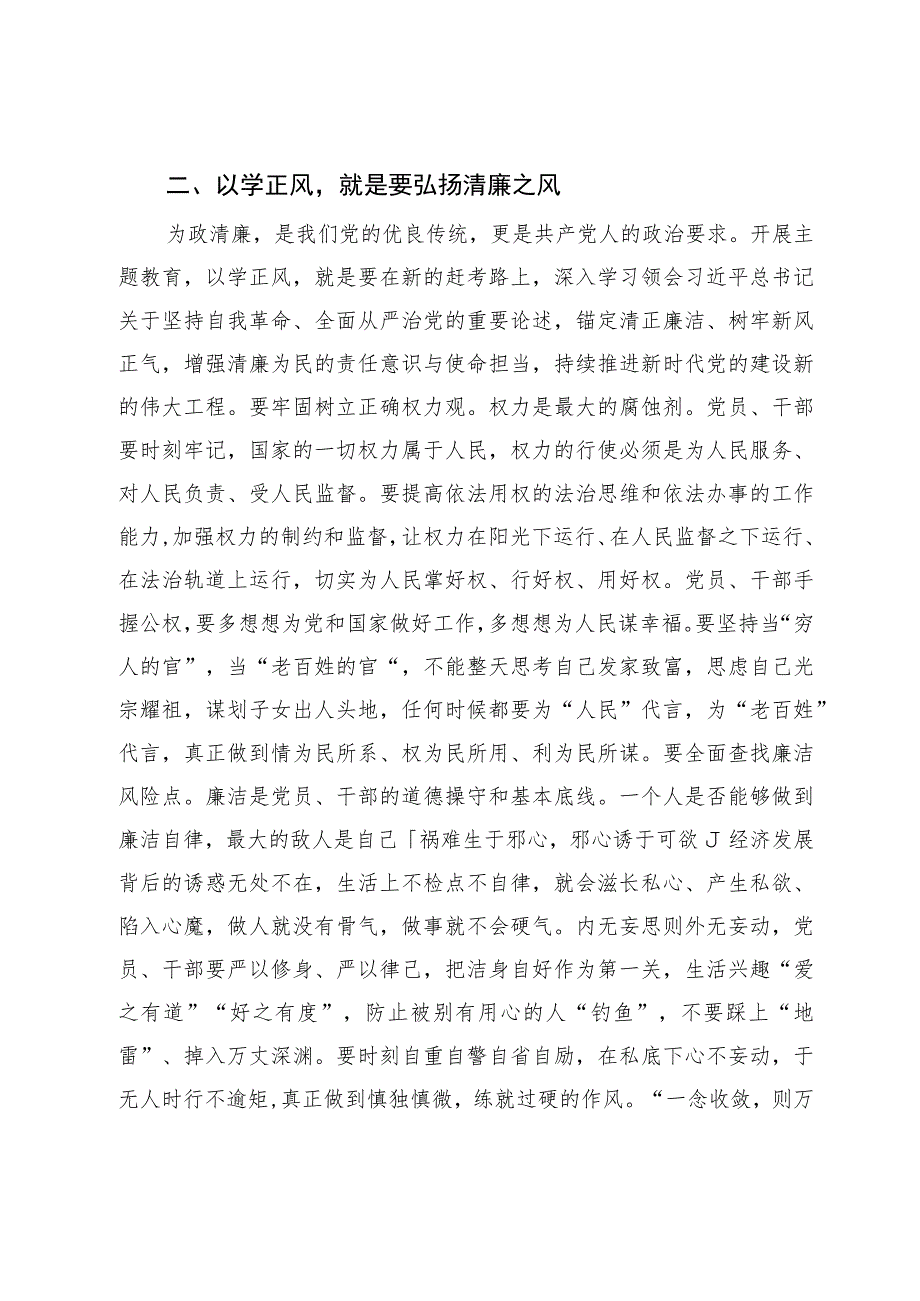 二、以学正风，就是要弘扬清廉之风
为政清廉，是我们党的优良传统，更是共产党人的政治要求。开展主
题教育，以学正风，就是要在新的赶考路上，深入学习领会习近平总书记
关于坚持自我革命、全面从严治党的重要论述，锚定清正廉洁、树牢新风
正气，增强清廉为民的责任意识与使命担当，持续推进新时代党的建设新
的伟大工程。要牢固树立正确权力观。权力是最大的腐蚀剂。党员、干部
要时刻牢记，国家的一切权力属于人民，权力的行使必须是为人民服务、
对人民负责、受人民监督。要提高依法用权的法治思维和依法办事的工作
能力,加强权力的制约和监督,让权力在阳光下运行、在人民监督之下运行、
在法治轨道上运行，切实为人民掌好权、行好权、用好权。党员、干部手
握公权,要多想想为党和国家做好工作,多想想为人民谋幸福。要坚持当“穷
人的官”，当“老百姓的官“，不能整天思考自己发家致富，思虑自己光
宗耀祖，谋划子女出人头地，任何时候都要为“人民”代言，为“老百姓”
代言，真正做到情为民所系、权为民所用、利为民所谋。要全面查找廉洁
风险点。廉洁是党员、干部的道德操守和基本底线。一个人是否能够做到
廉洁自律，最大的敌人是自己「祸难生于邪心，邪心诱于可欲J经济发展
背后的诱惑无处不在，生活上不检点不自律，就会滋长私心、产生私欲、
陷入心魔，做人就没有骨气，做事就不会硬气。内无妄思则外无妄动，党
员、干部要严以修身、严以律己，把洁身自好作为第一关，生活兴趣“爱
之有道”“好之有度”，防止被别有用心的人“钓鱼”，不要踩上“地
雷”、掉入万丈深渊。要时刻自重自警自省自励，在私底下心不妄动，于
无人时行不逾矩,真正做到慎独慎微，练就过硬的作风。“一念收敛，则万